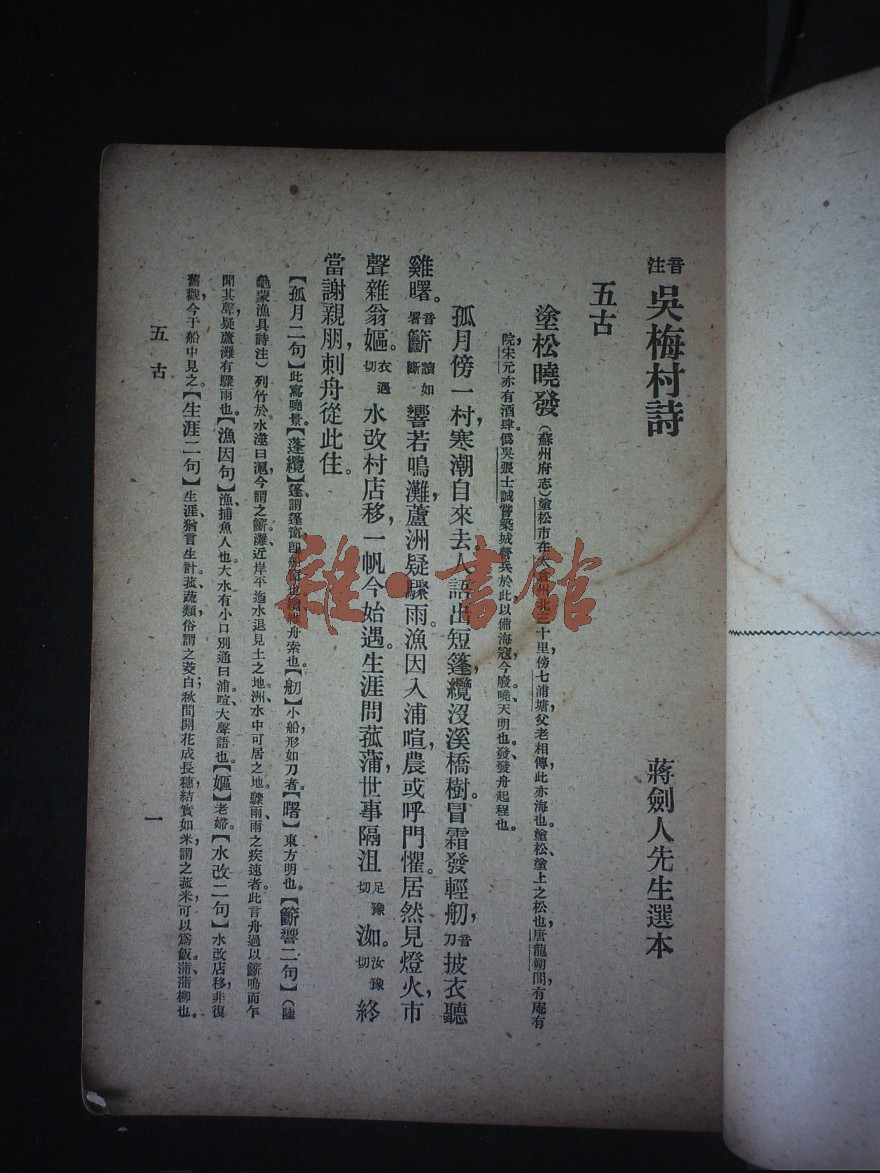 音注 吳梅村詩
蔣劍人先生選本
五古
塗松曉發（蘇州府志）塗松市在太倉州北三十里，傍七浦塘，父老相傳此亦海也。塗松、塗上之松也。唐龍朔間有庵有
院，宋元亦有酒肆。偽吳張士誠嘗築城督兵於此以備海寇，今廢。曉、天明也。發、發舟起程也。
孤月傍一村，寒潮自來去。人語出短篷，纜沒溪橋樹。冒霜發輕舠，音刀披衣聽
雞曙。音署籪讀如斷響若鳴灘，蘆洲疑驟雨。漁因入浦喧，農或呼門懼。居然見燈火，市
聲雜翁嫗。衣遇切水改村店移，一帆今始遇。生涯問菰蒲，世事隔沮足豫切洳。汝豫切終
當謝親朋，刺舟從此住。
【孤月二句】此寫曉景。【蓬纜】篷、謂篷窗，即船窗也。纜、維舟索也。【舠】小船形如刀者。【曙】東方明也。【籪響二句】（陸
龜蒙漁具詩注）列竹於水澨曰滬，今謂之籪。灘、近岸平迤水退見土之地。洲、水中可居之地。驟雨、雨之疾速者。此言舟過以籪鳴而乍
聞其聲，疑蘆灘有驟雨也。【漁因句】漁、捕魚人也。大水有小口別通曰浦。喧、大聲語也。【嫗】老婦。【水改二句】水改店移，非復
舊觀，今于船中見之。【生涯二句】生涯、猶言生計。菰、蔬類，俗謂之茭白，秋間開花成長穗，結實如米，謂之菰米，可以爲飯。蒲、蒲柳也。
五古
一
雜·書館